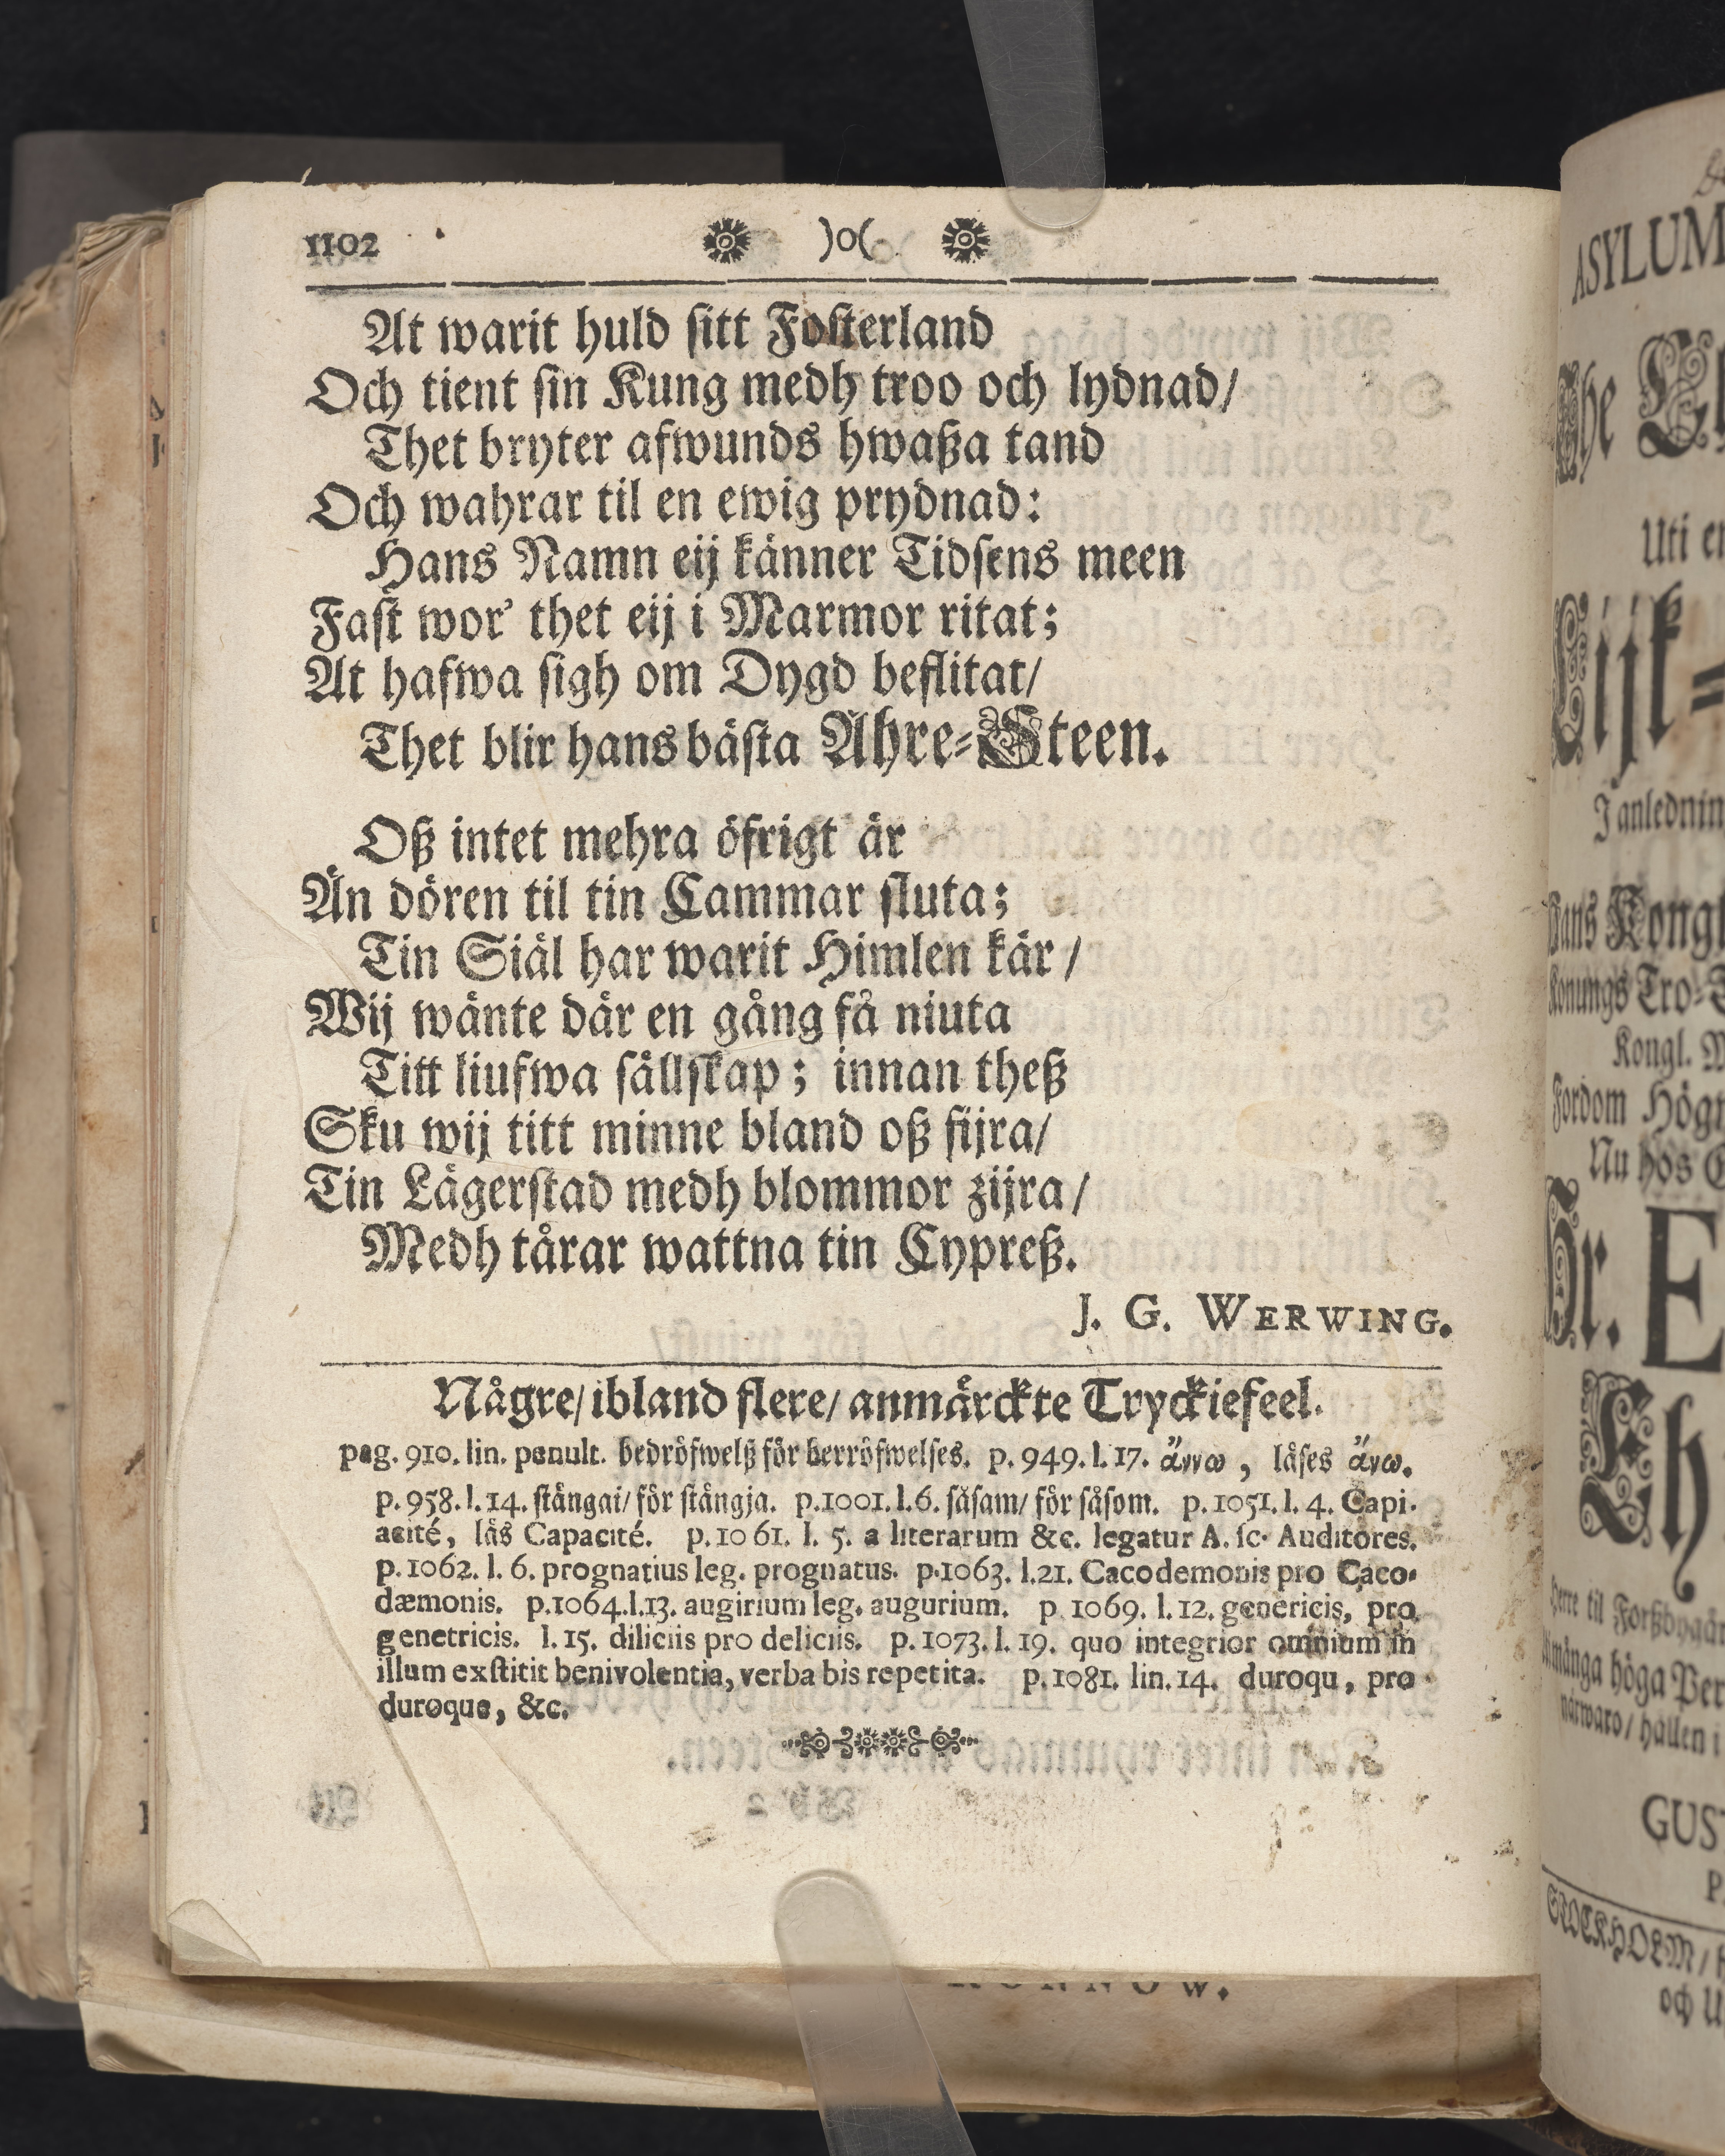 1102 )o(
At warit huld sitt Fosterland
Och tient sin Kung medh troo och lydnad/
Thet bryter afwunds hwaßa tand
Och wahrar til en ewig prydnad:
Hans Namn eij känner Tidsens meen
Fast wor' thet eij i Marmor ritat;
At hafwa sigh om Dygd beflitat/
Thet blir hans bästa Ähre-Steen.
Oß intet mehra öfrigt är
Än dören til tin Cammar sluta;
Tin Siäl har warit Himlen kär/
Wij wänte där en gång få niuta
Titt liufwa sällskap; innan theß
Sku wij titt minne bland oß fijra/
Tin Lägerstad medh blommor zijra/
Medh tårar wattna tin Cypreß.
J. G. WERWING.
Någre/ ibland flere/ anmärckte Tryckiefeel.
pag. 910. lin. penult. bedröfwelß för berröfwelses. p. 949. l. 17. ἄννω, läses ἄνω.
p. 958. l. 14. stängai/ för stängja. p. 1001. l. 6. såsam/ för såsom. p. 1051. l. 4. Capi-
acité, läs Capacité. p. 1061. l. 5. a literarum &c. legatur A. sc. Auditores.
p. 1062. l. 6. prognatius leg. prognatus. p. 1063. l. 21. Cacodemonis pro Caco-
dæmonis. p. 1064. l. 13. augirium leg. augurium. p. 1069. l. 12. genericis, pro
genetricis. l. 15. diliciis pro deliciis. p. 1073. l. 19. quo integrior omnium in
illum exstitit benivolentia, verba bis repetita. p. 1081. lin. 14. duroqu, pro
duroque, &c.
ASYLUM
The
Uti
Lijk-
I
Hans Kongl
Konungs Tro-
Kongl. M
Fordom Hög
Nu hos
Hr. E
Eh
Herre til
många höga Per
närwaro/ hållen i
GUS
P
STOCKHOLM/
och U
RONNOW.